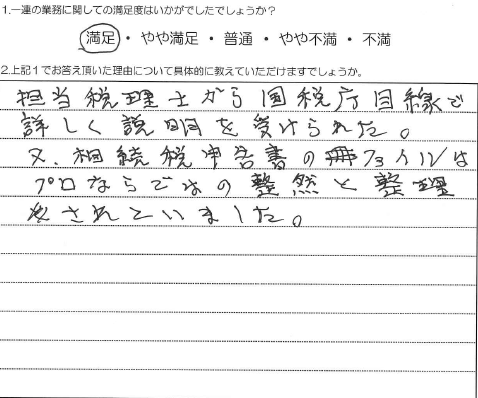 1.一連の業務に関しての満足度はいかがでしたでしょうか？
満足 ・ やや満足 ・ 普通 ・ やや不満 ・ 不満
2.上記１でお答え頂いた理由について具体的に教えていただけますでしょうか。
担当税理士から国税庁目線で
詳しく説明を受けられた。
又、相続税申告書のファイルは
プロならではの整然と整理
されていました。